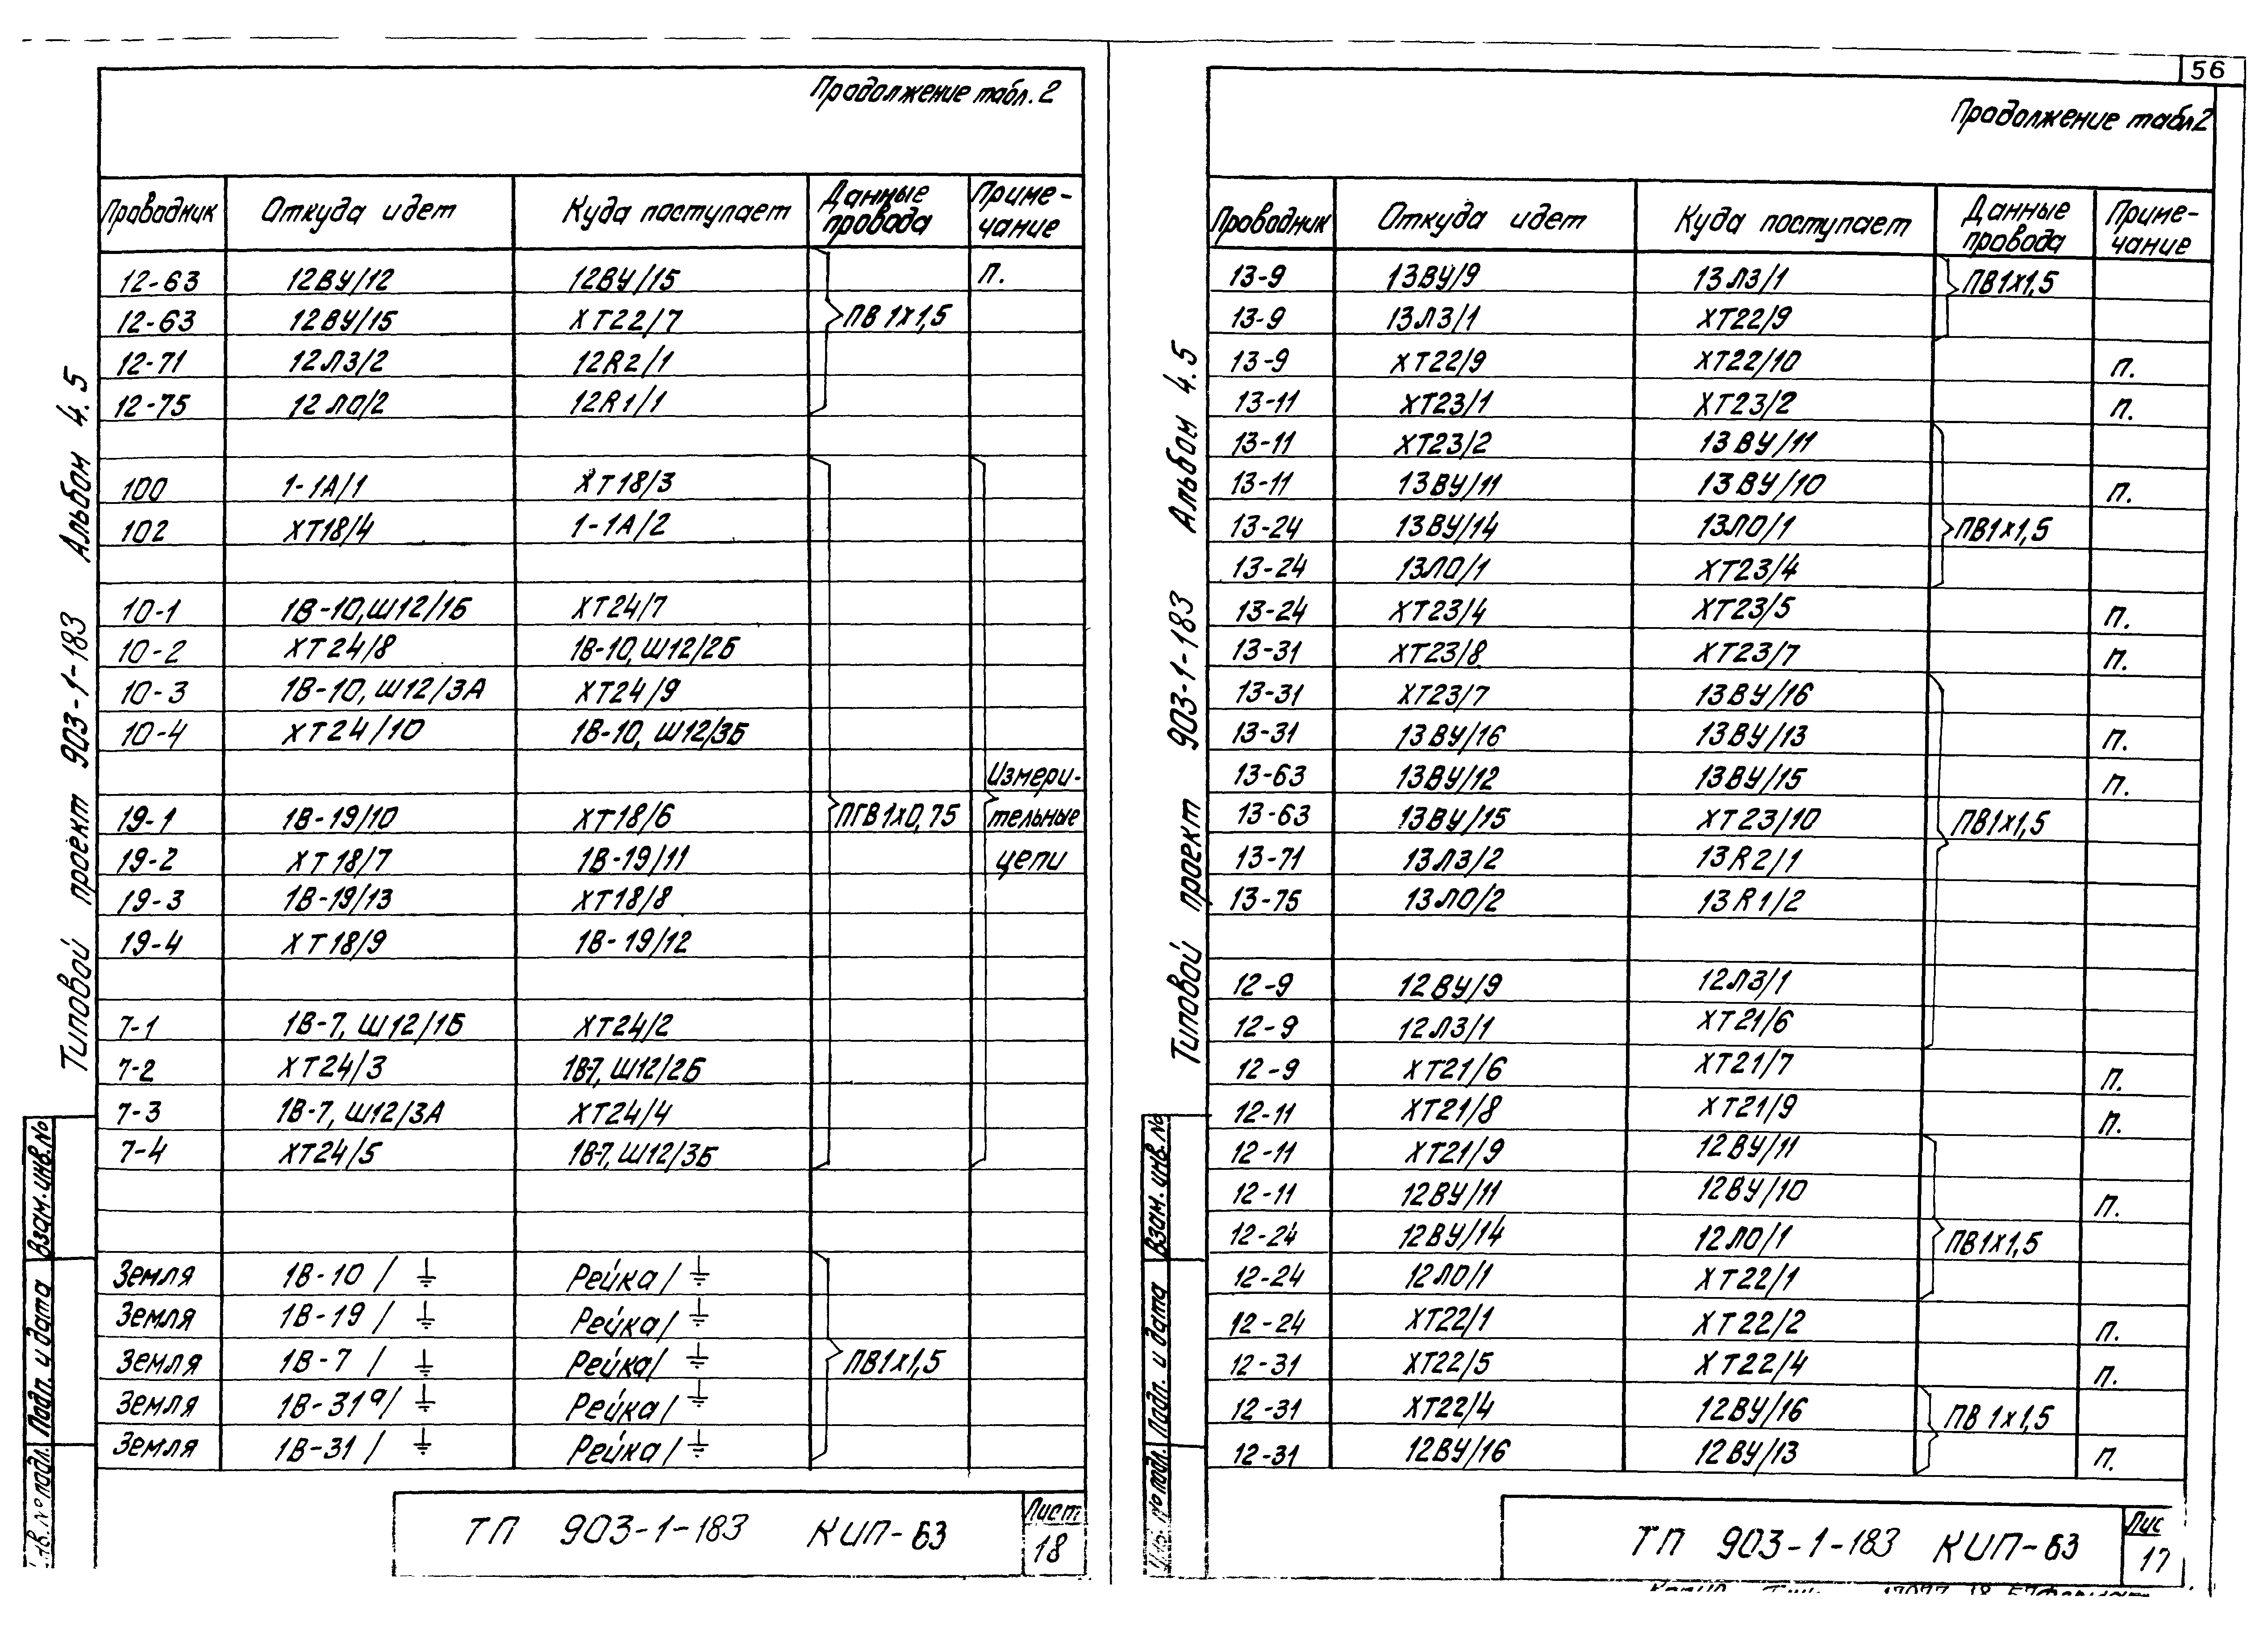 56
Продолжение табл. 2
Проводник Откуда идет Куда поступает Данные провода Приме-чание
12-63 12ВУ/12 12ВУ/15 П.
12-63 12ВУ/15 ХТ22/7 ПВ 1х1,5
12-71 12ЛЗ/2 12R2/1
12-75 12ЛО/2 12R1/1
100 1-1А/1 ХТ18/3
102 ХТ18/4 1-1А/2
10-1 1В-10,Ш12/1Б ХТ24/7
10-2 ХТ24/8 1В-10,Ш12/2Б
10-3 1В-10,Ш12/3А ХТ24/9
10-4 ХТ24/10 1В-10, Ш12/3Б
Измери-
19-1 1В-19/10 ХТ18/6 ПГВ1х0,75 тельные
19-2 ХТ18/7 1В-19/11 цепи
19-3 1В-19/13 ХТ18/8
19-4 ХТ18/9 1В-19/12
7-1 1В-7, Ш12/1Б ХТ24/2
7-2 ХТ24/3 1В-7, Ш12/2Б
7-3 1В-7, Ш12/3А ХТ24/4
7-4 ХТ24/5 1В-7, Ш12/3Б
Земля 1В-10/⏚ Рейка/⏚
Земля 1В-19/⏚ Рейка/⏚
Земля 1В-7/⏚ Рейка/⏚ ПВ1х1,5
Земля 1В-31а/⏚ Рейка/⏚
Земля 1В-31/⏚ Рейка/⏚
ТП 903-1-183 КИП-63
Лист
18
Типовой проект 903-1-183 Альбом 4.5
Взам. инв. №
Подп. и дата
№ подл.
Продолжение табл 2
Проводник Откуда идет Куда поступает Данные провода Приме-чание
13-9 13ВУ/9 13ЛЗ/1 ПВ1х1,5
13-9 13ЛЗ/1 ХТ22/9
13-9 ХТ22/9 ХТ22/10 П.
13-11 ХТ23/1 ХТ23/2 П.
13-11 ХТ23/2 13ВУ/11
13-11 13ВУ/11 13ВУ/10 П.
13-24 13ВУ/14 13ЛО/1 ПВ1х1,5
13-24 13ЛО/1 ХТ23/4
13-24 ХТ23/4 ХТ23/5 П.
13-31 ХТ23/8 ХТ23/7 П.
13-31 ХТ23/7 13ВУ/16
13-31 13ВУ/16 13ВУ/13 П.
13-63 13ВУ/12 13ВУ/15 П.
13-63 13ВУ/15 ХТ23/10 ПВ1х1,5
13-71 13ЛЗ/2 13R2/1
13-75 13ЛО/2 13R1/2
12-9 12ВУ/9 12ЛЗ/1
12-9 12ЛЗ/1 ХТ21/6
12-9 ХТ21/6 ХТ21/7 П.
12-11 ХТ21/8 ХТ21/9 П.
12-11 ХТ21/9 12ВУ/11
12-11 12ВУ/11 12ВУ/10 П.
12-24 12ВУ/14 12ЛО/1 ПВ1х1,5
12-24 12ЛО/1 ХТ22/1
12-24 ХТ22/1 ХТ22/2 П.
12-31 ХТ22/5 ХТ22/4 П.
12-31 ХТ22/4 12ВУ/16 ПВ 1х1,5
12-31 12ВУ/16 12ВУ/13 П.
ТП 903-1-183 КИП-63
Лис
17
Типовой проект 903-1-183 Альбом 4.5
Взам. инв. №
Подп. и дата
№ подл.